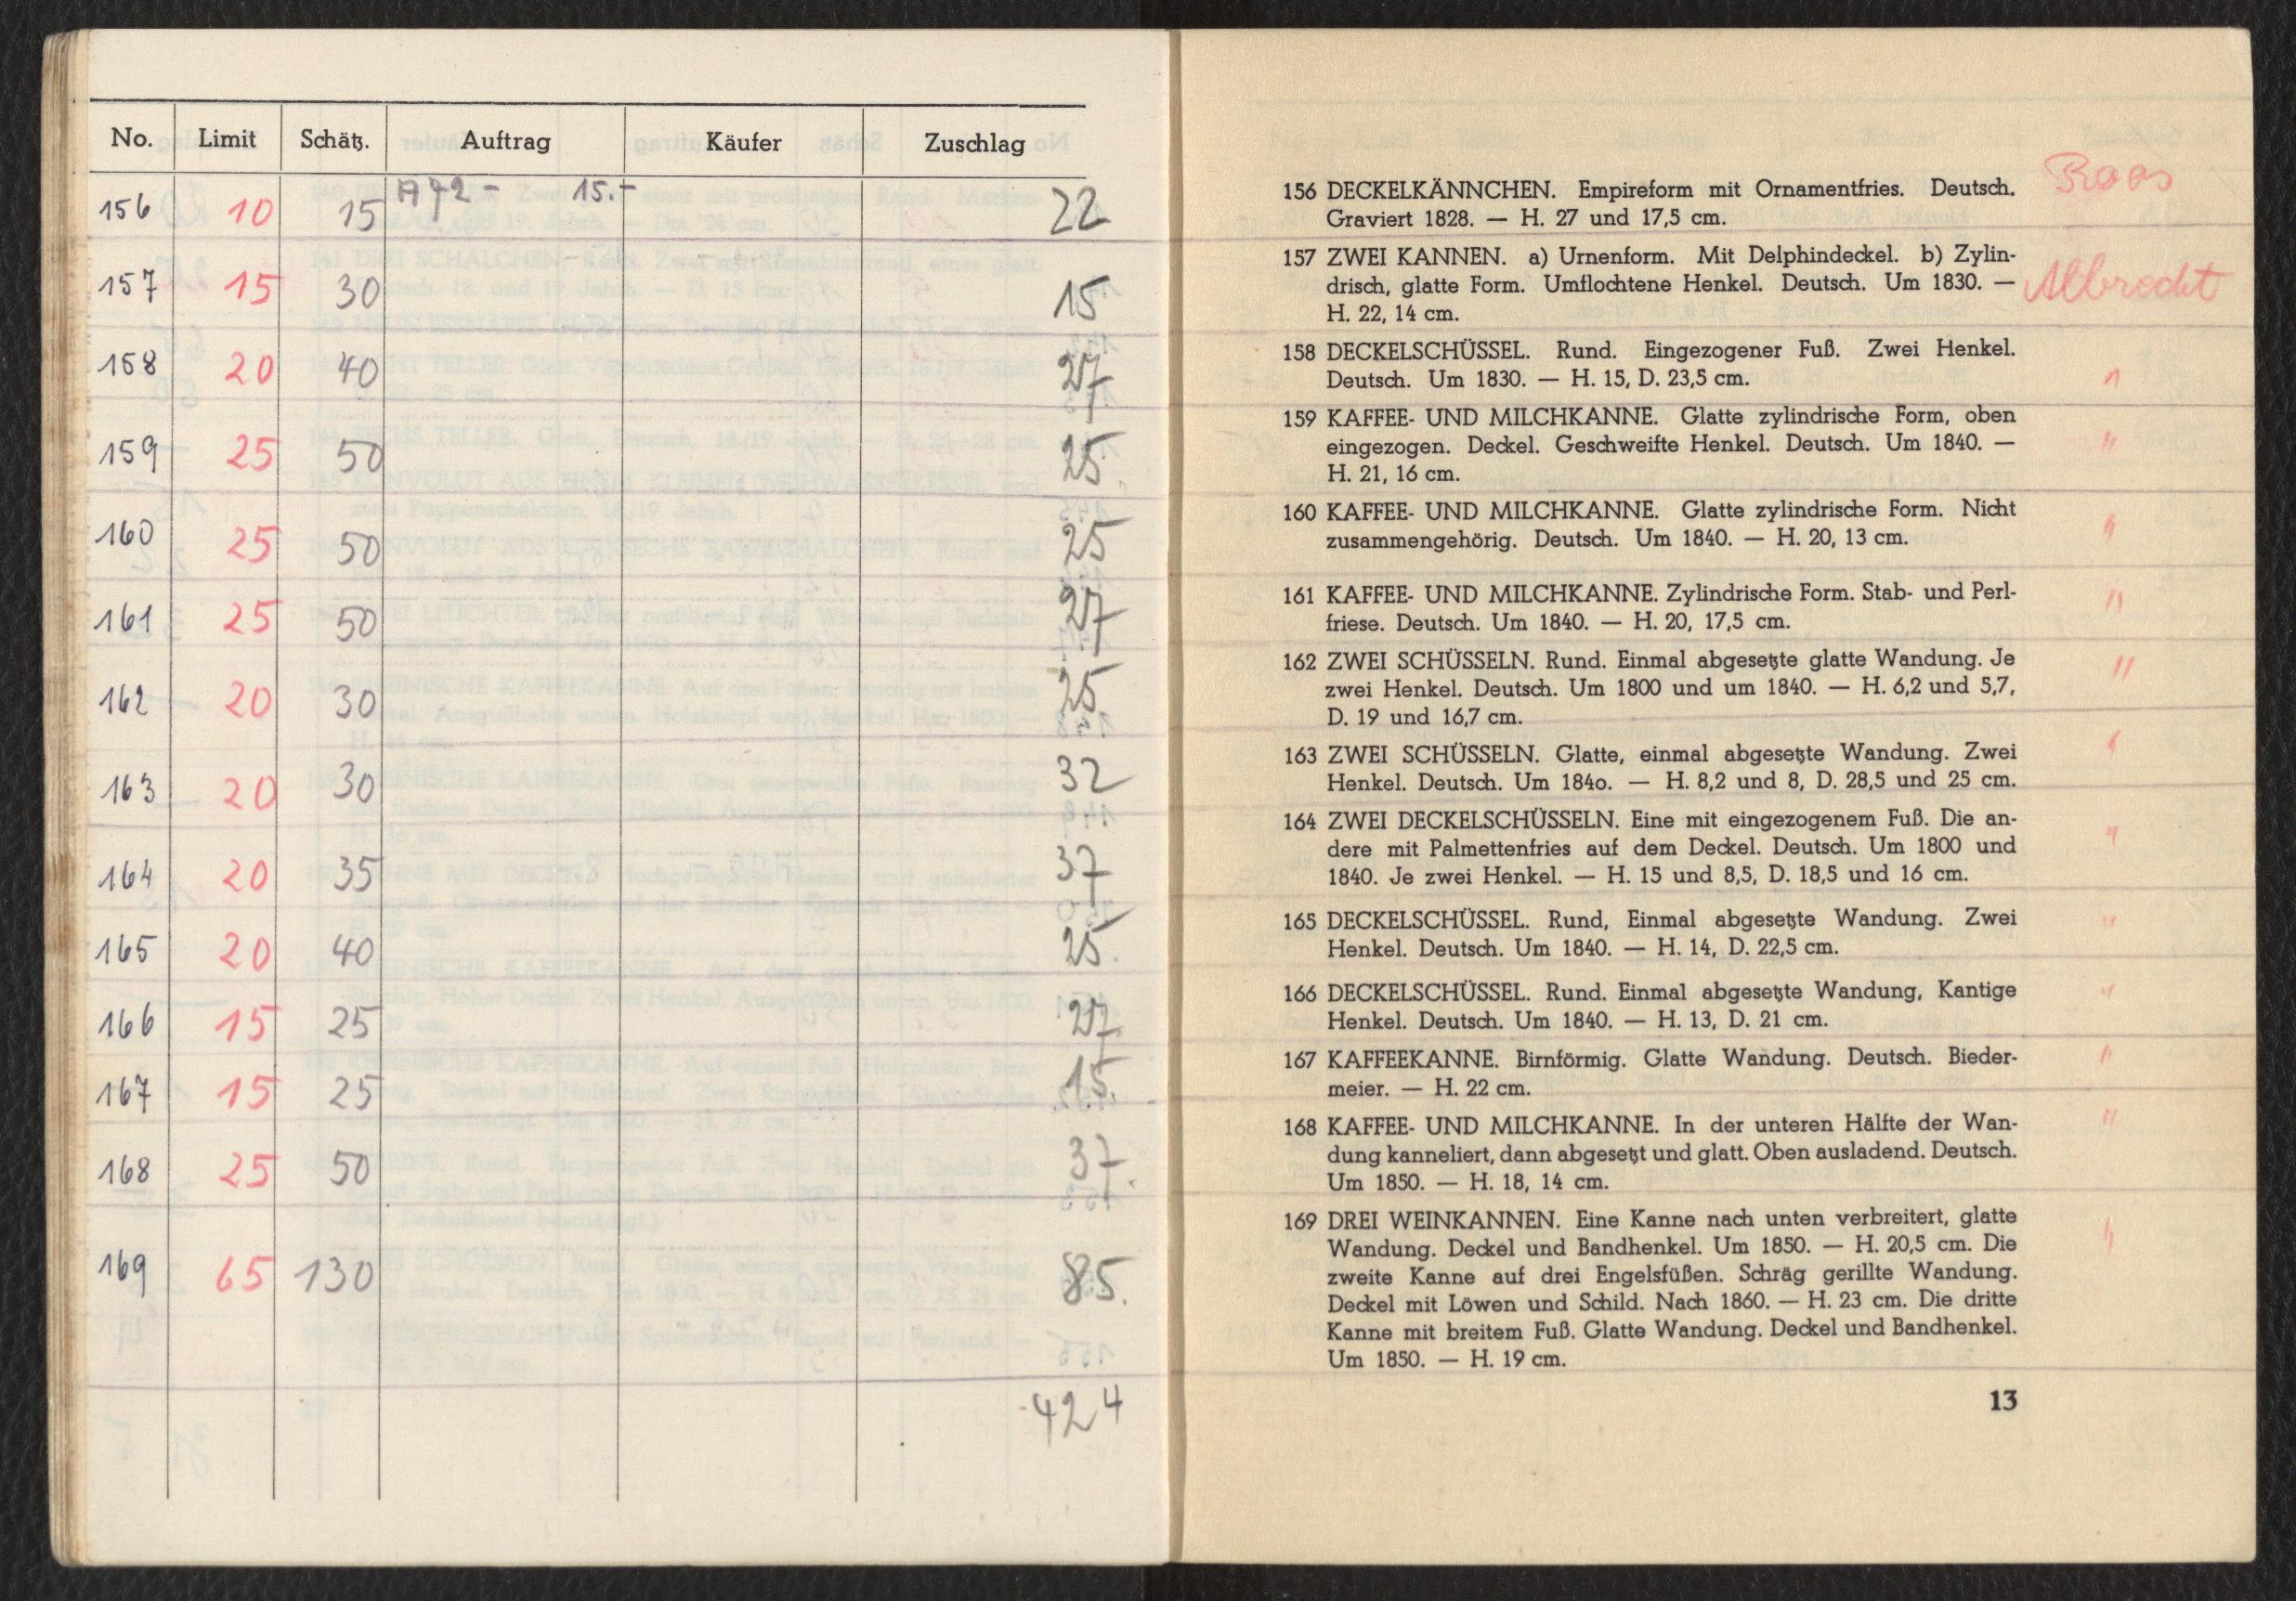 No. Limit Schätz. Auftrag Käufer Zuschlag
156 10 15 A 72 - 15.- 22
157 15 30 15
158 20 40 27
159 25 50 25
160 25 50 25
161 25 50 27
162 20 30 25
163 20 30 32
164 20 35 37
165 20 40 25
166 15 25 27
167 15 25 15
168 25 50 37
169 65 130 85
424
156 DECKELKÄNNCHEN. Empireform mit Ornamentfries. Deutsch. Roos
Graviert 1828. — H. 27 und 17,5 cm.
157 ZWEI KANNEN. a) Urnenform. Mit Delphindeckel. b) Zylin-
drisch, glatte Form. Umflochtene Henkel. Deutsch. Um 1830. — Albrecht
H. 22, 14 cm.
158 DECKELSCHÜSSEL. Rund. Eingezogener Fuß. Zwei Henkel.
Deutsch. Um 1830. — H. 15, D. 23,5 cm. "
159 KAFFEE- UND MILCHKANNE. Glatte zylindrische Form, oben
eingezogen. Deckel. Geschweifte Henkel. Deutsch. Um 1840. — "
H. 21, 16 cm.
160 KAFFEE- UND MILCHKANNE. Glatte zylindrische Form. Nicht "
zusammengehörig. Deutsch. Um 1840. — H. 20, 13 cm.
161 KAFFEE- UND MILCHKANNE. Zylindrische Form. Stab- und Perl- "
friese. Deutsch. Um 1840. — H. 20, 17,5 cm.
162 ZWEI SCHÜSSELN. Rund. Einmal abgesetzte glatte Wandung. Je "
zwei Henkel. Deutsch. Um 1800 und um 1840. — H. 6,2 und 5,7,
D. 19 und 16,7 cm.
163 ZWEI SCHÜSSELN. Glatte, einmal abgesetzte Wandung. Zwei "
Henkel. Deutsch. Um 184o. — H. 8,2 und 8, D. 28,5 und 25 cm.
164 ZWEI DECKELSCHÜSSELN. Eine mit eingezogenem Fuß. Die an- "
dere mit Palmettenfries auf dem Deckel. Deutsch. Um 1800 und
1840. Je zwei Henkel. — H. 15 und 8,5, D. 18,5 und 16 cm.
165 DECKELSCHÜSSEL. Rund, Einmal abgesetzte Wandung. Zwei "
Henkel. Deutsch. Um 1840. — H. 14, D. 22,5 cm.
166 DECKELSCHÜSSEL. Rund. Einmal abgesetzte Wandung, Kantige "
Henkel. Deutsch. Um 1840. — H. 13, D. 21 cm.
167 KAFFEEKANNE. Birnförmig. Glatte Wandung. Deutsch. Bieder- "
meier. — H. 22 cm.
168 KAFFEE- UND MILCHKANNE. In der unteren Hälfte der Wan- "
dung kanneliert, dann abgesetzt und glatt. Oben ausladend. Deutsch.
Um 1850. — H. 18, 14 cm.
169 DREI WEINKANNEN. Eine Kanne nach unten verbreitert, glatte "
Wandung. Deckel und Bandhenkel. Um 1850. — H. 20,5 cm. Die
zweite Kanne auf drei Engelsfüßen. Schräg gerillte Wandung.
Deckel mit Löwen und Schild. Nach 1860. — H. 23 cm. Die dritte
Kanne mit breitem Fuß. Glatte Wandung. Deckel und Bandhenkel.
Um 1850. — H. 19 cm.
13